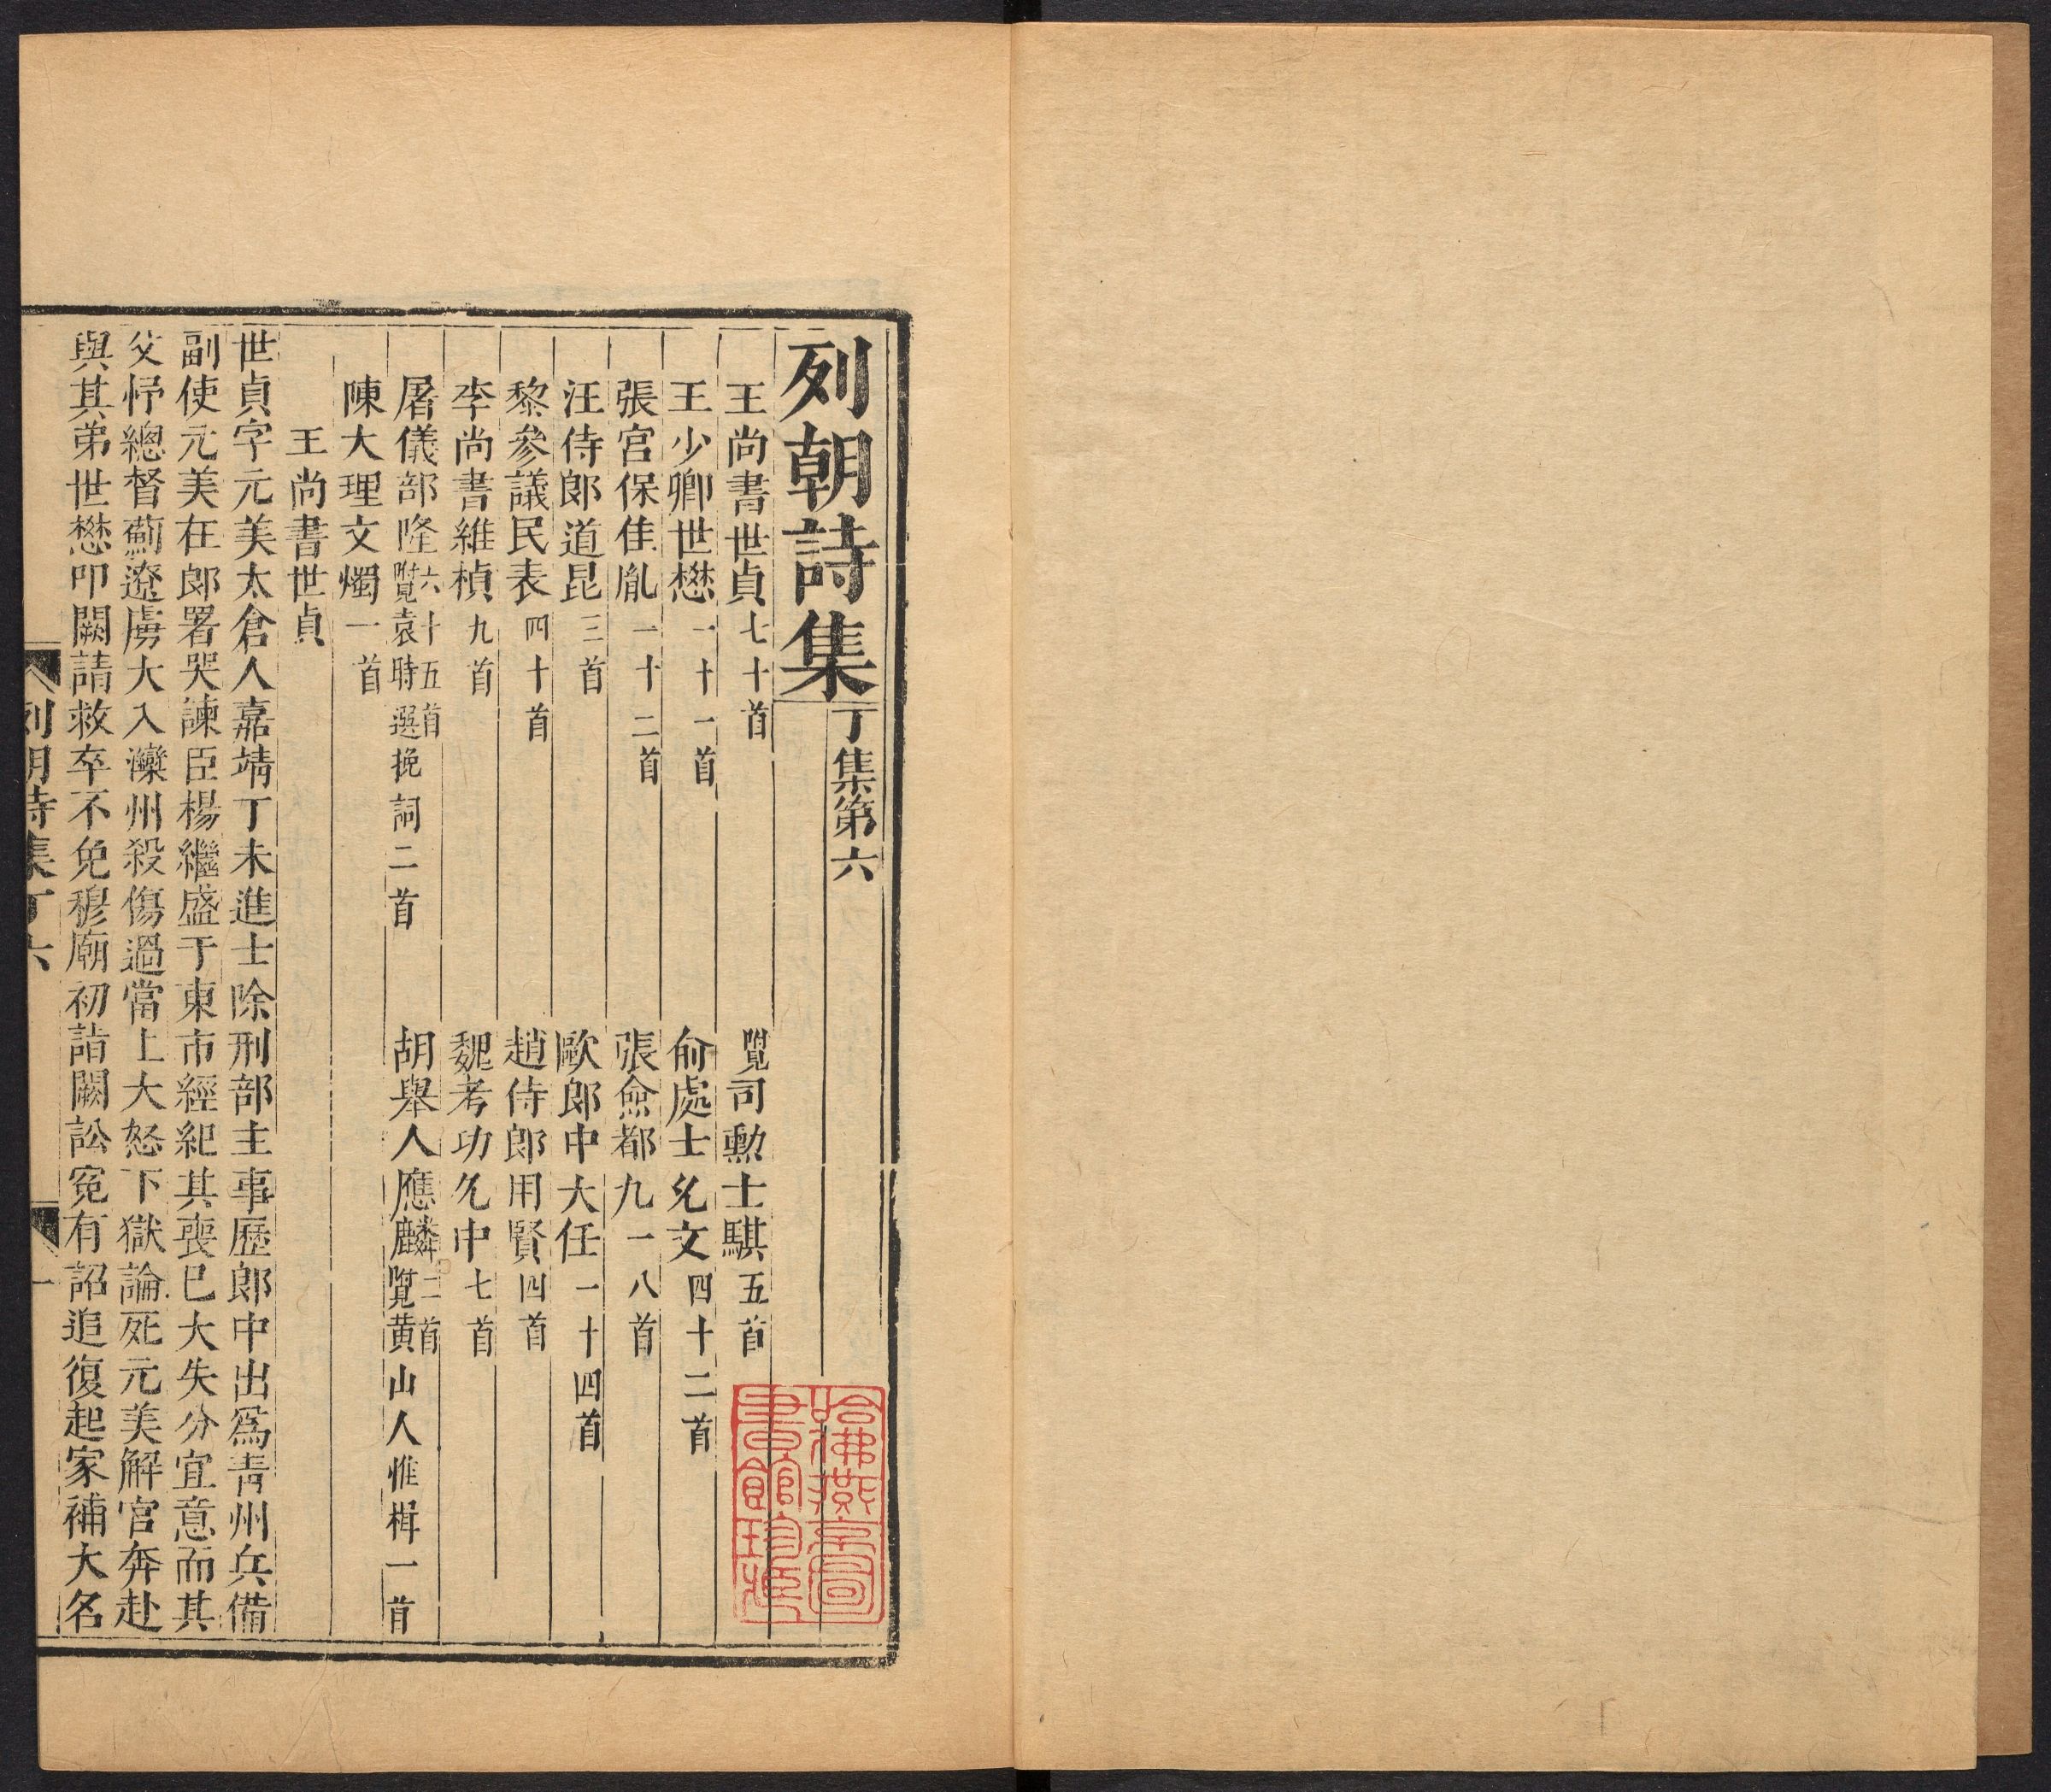 列朝詩集丁集第六
王尚書世貞七十首 覽司勳士騏五首
王少卿世懋一十一首 俞處士允文四十二首
張宮保佳胤一十二首 張僉都九一八首
汪侍郎道昆三首 歐郎中大任一十四首
黎參議民表四十首 趙侍郎用賢四首
李尚書維楨九首 魏考功允中七首
屠儀部隆六十五首覽袁時選挽詞二首 胡舉人應麟二首覽黄山人惟楫一首
陳大理文燭一首
王尚書世貞
世貞字元美太倉人嘉靖丁未進士除刑部主事歷郎中出爲青州兵備
副使元美在郎署哭諫臣楊繼盛于東市經紀其喪巳大失分宜意而其
父忬總督薊遼虜大入灤州殺傷過當上大怒下獄論死元美解官奔赴
與其弟世懋叩闕請救卒不免穆廟初詣闕訟冤有詔追復起家補大名
列朝詩集丁六 一
哈佛燕京圖書館珍藏